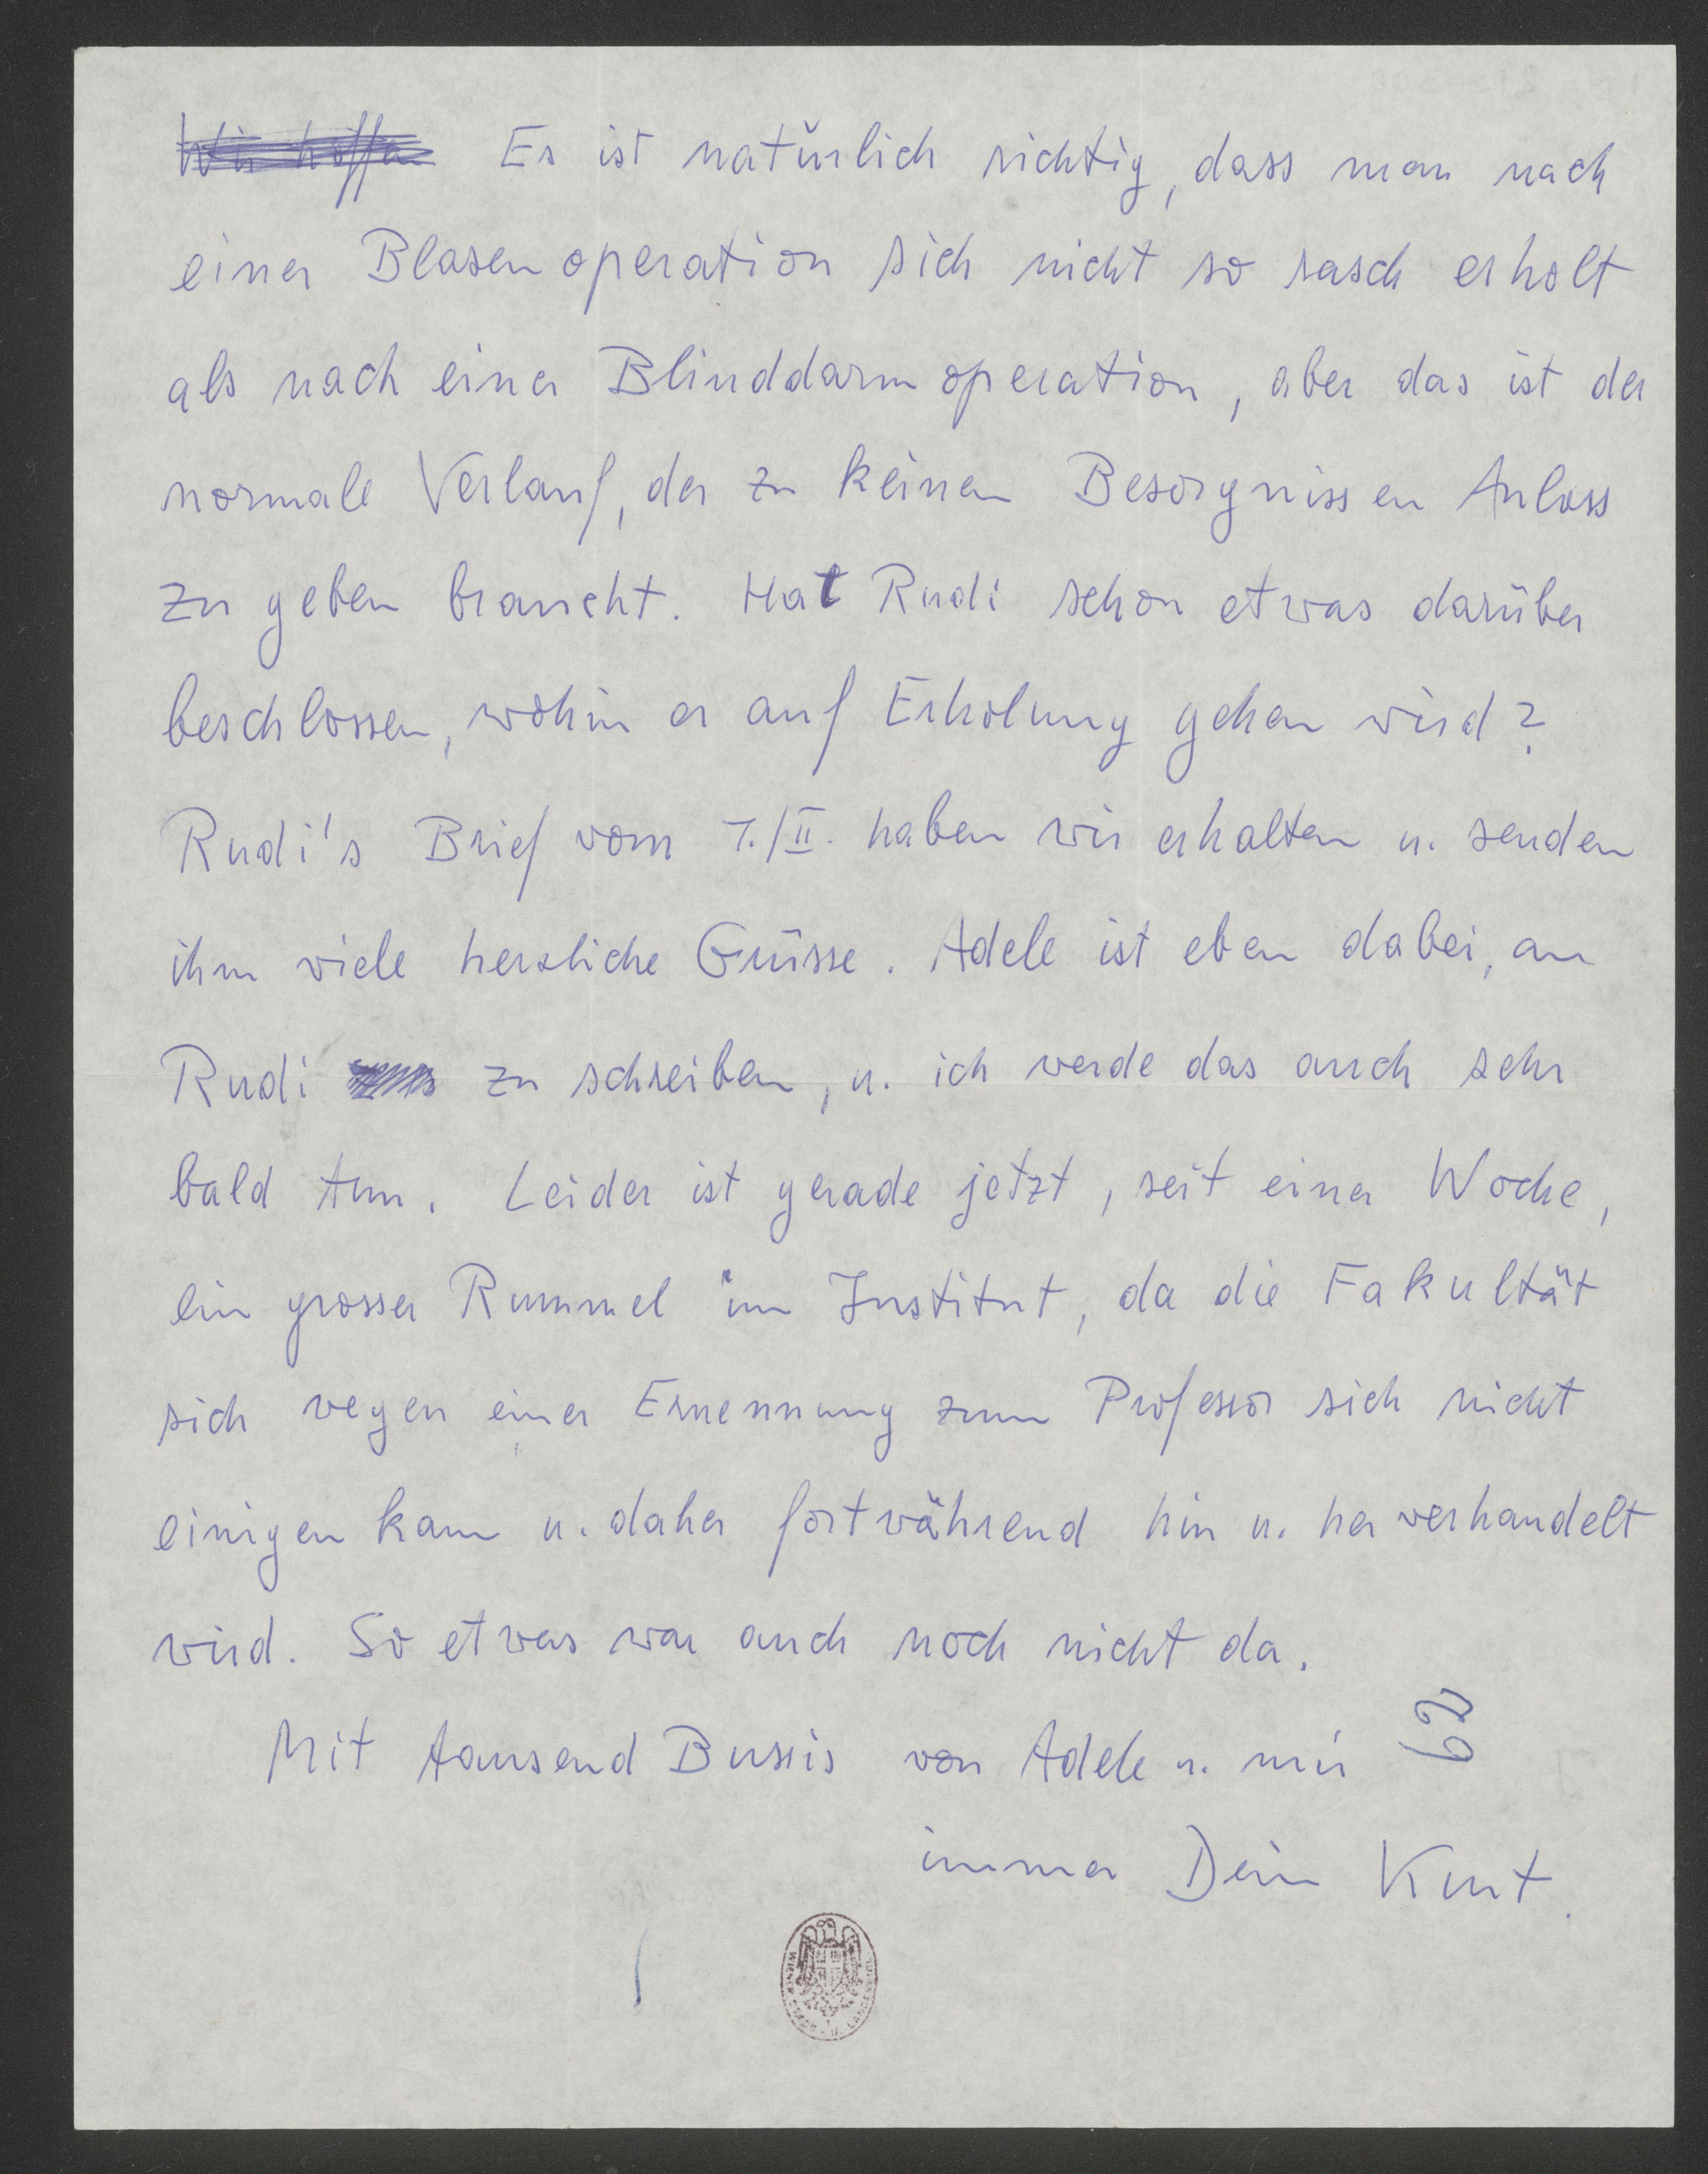 Wir hoffen Es ist natürlich richtig, dass man nach
einer Blasenoperation sich nicht so rasch erholt
als nach einer Blinddarmoperation, aber das ist der
normale Verlauf, der zu keinen Besorgnissen Anlass
zu geben braucht. Hat Rudi schon etwas darüber
beschlossen, wohin er auf Erholung gehen wird?
Rudi's Brief vom 7./II. haben wir erhalten u. senden
ihm viele herzliche Grüsse. Adele ist eben dabei, an
Rudi zu schreiben, u. ich werde das auch sehr
bald tun. Leider ist gerade jetzt, seit einer Woche,
ein grosser Rummel im Institut, da die Fakultät
sich wegen einer Ernennung zum Professor sich nicht
einigen kann u. daher fortwährend hin u. her verhandelt
wird. So etwas war auch noch nicht da.
Mit tausend Bussis von Adele u. mir
immer Dein Kurt.